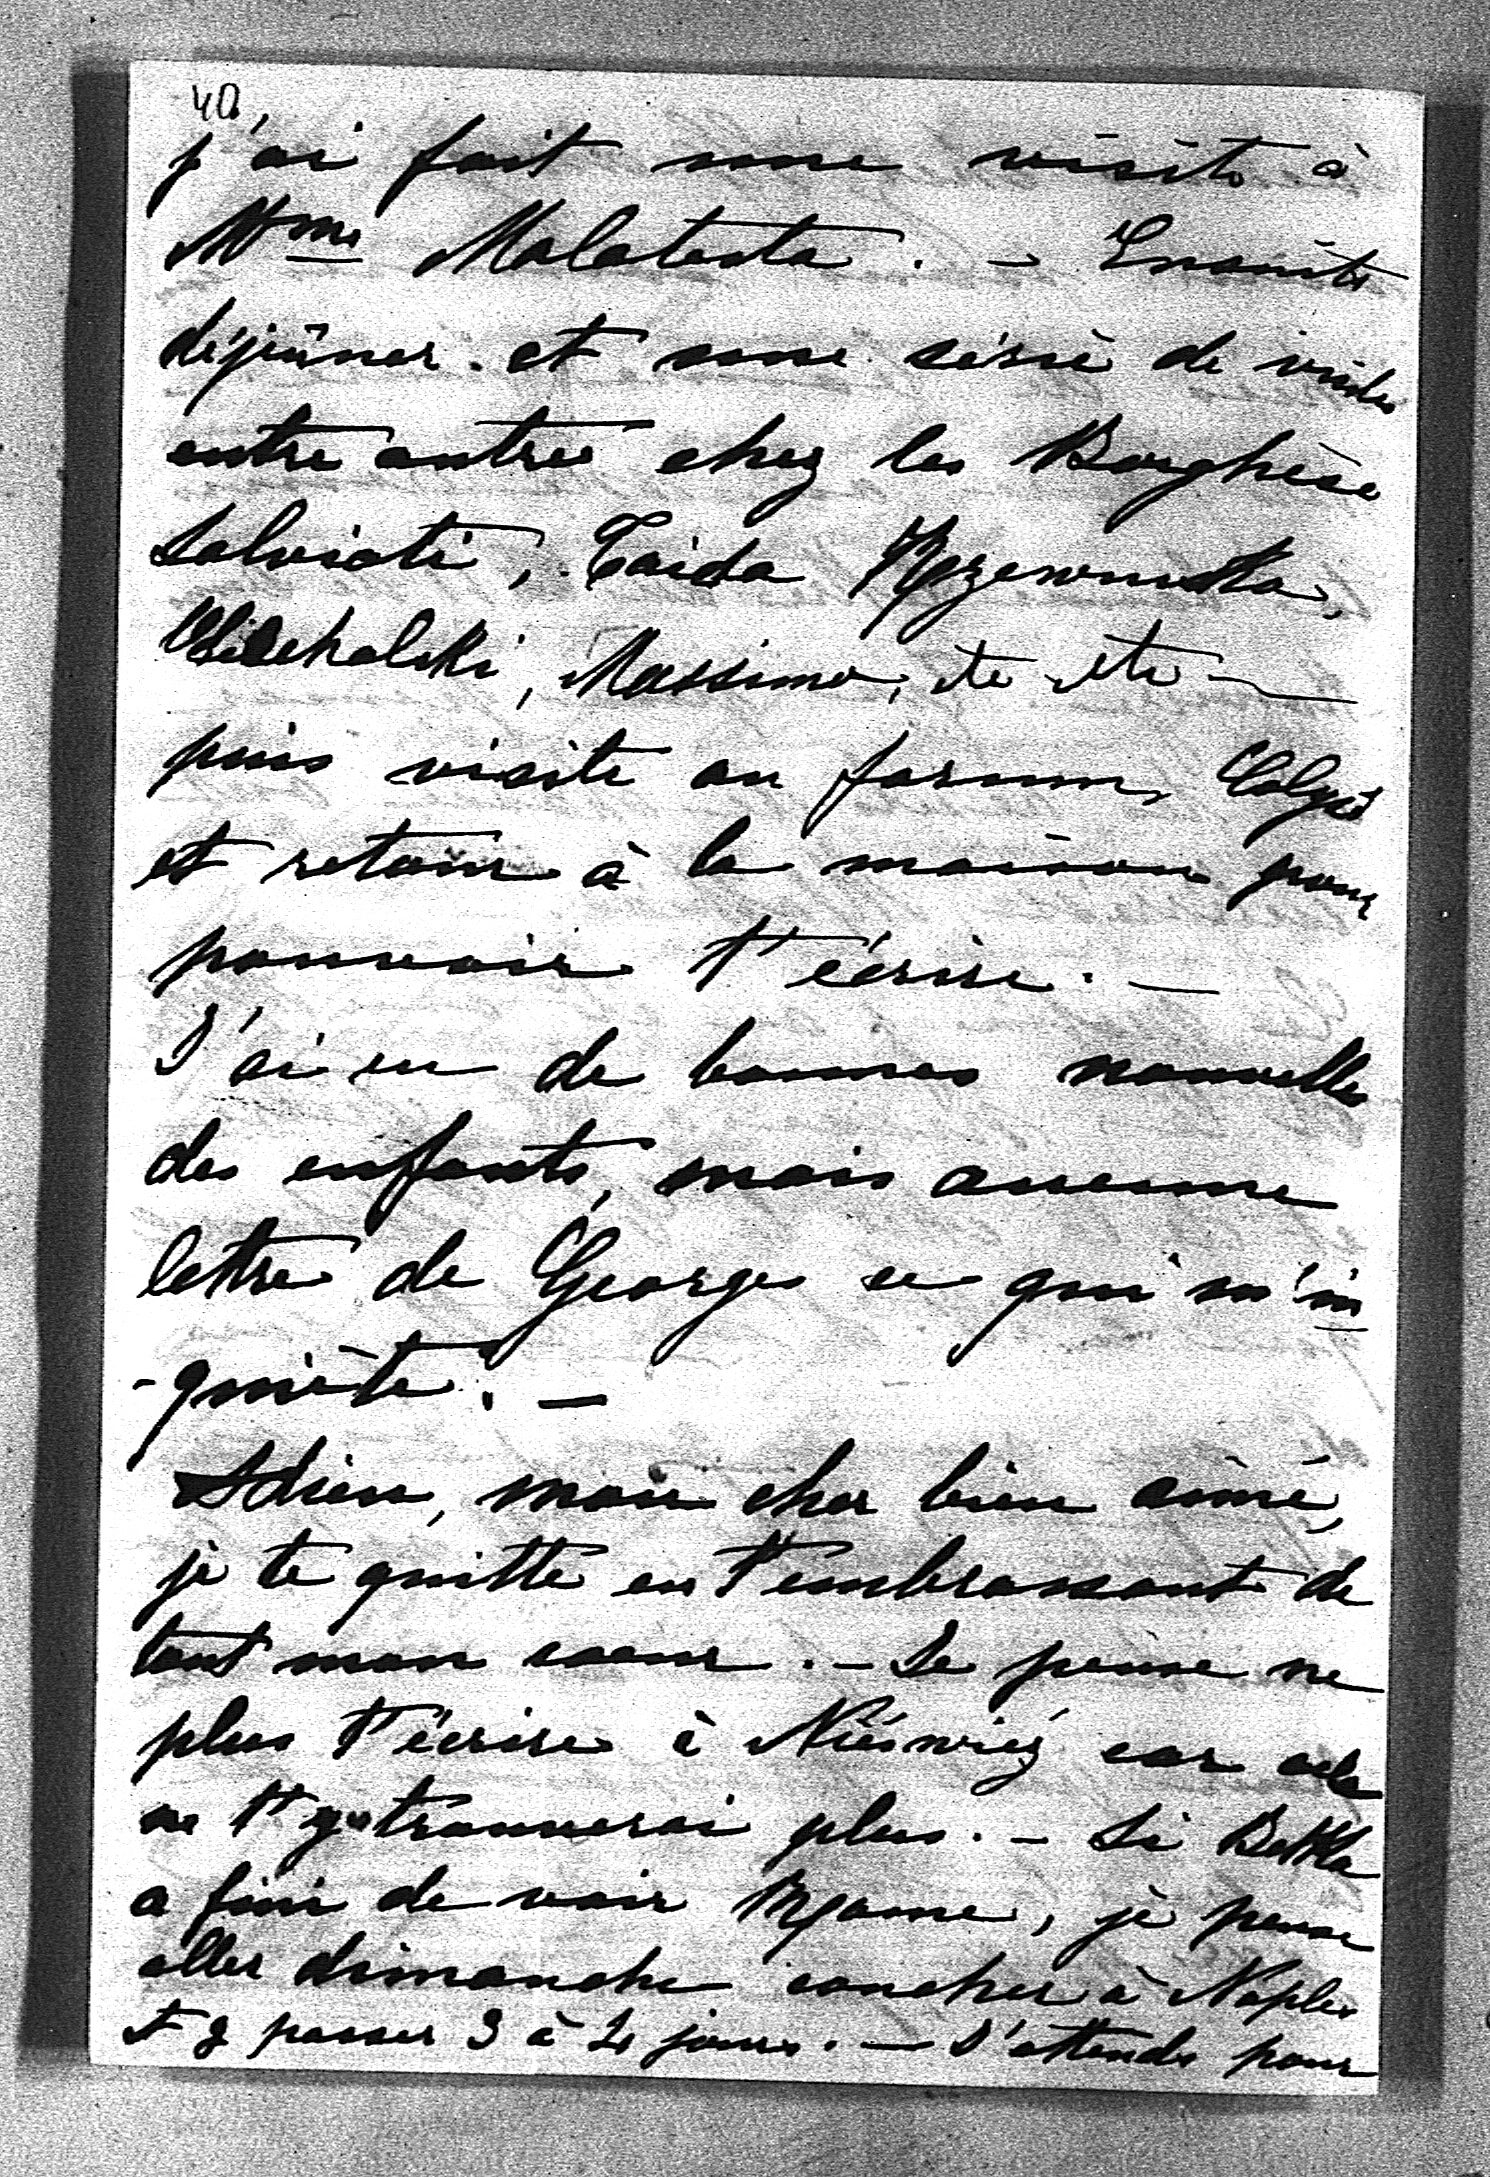 40
j'ai fait une visite à
Mme Malatesta. - Ensuite
déjeûner. et une série de visites
entre autres chez les Borghèse
Salviati, Taida Rzewuska,
Michalski, Massimo, etc etc —
puis visite au forum, Colysé
et retour à la maison pour
pouvoir t'écrire. —
J'ai eu de bonnes nouvelles
des enfants, mais aucune
lettre de Georges ce qui m'in
-quiète. —
Adieu, mon cher bien aimé,
je te quitte en t'embrassant de
tout mon coeur. - Je pense ne
plus t'écrire à Nieśwież car cela
ne t'y trouverai plus. - Si
a fini de voir Rome, je pense
aller dimanche coucher à Naples
et y passer 3 à 4 jours. — J'attends pour